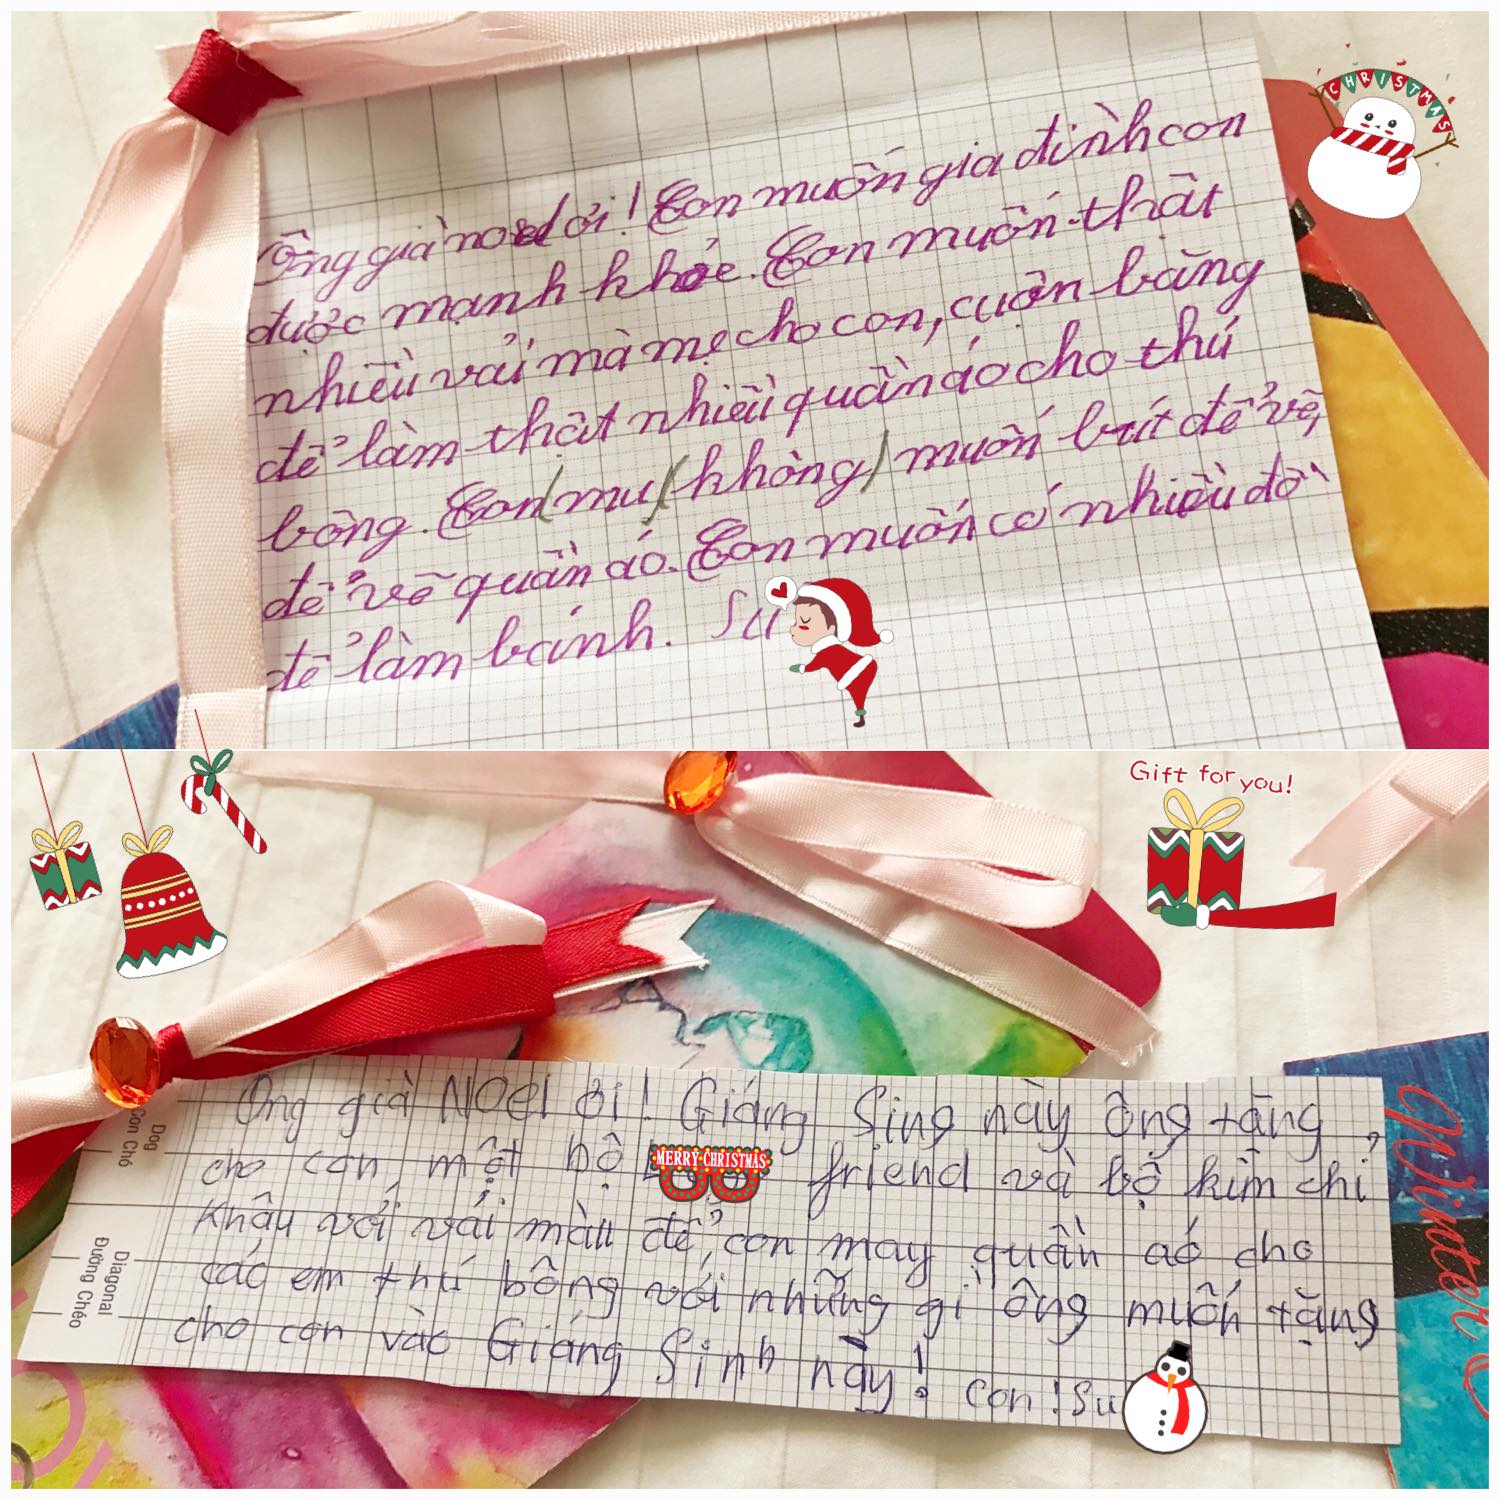 CHRISTMAS
Ông già noel ơi! Con muốn gia đình con
được mạnh khỏe. Con muốn thật
nhiều vải mà mẹ cho con, cuộn băng
để làm thật nhiều quần áo cho thú
bông. Con (mu) (không) muốn bút để vẽ,
để vẽ quần áo. Con muốn có nhiều đồ
để làm bánh. Su
Gift for you!
Ông già NOEl ơi! Giáng Sing này ông tặng
cho con một bộ friend và bộ kim chỉ
MERRY CHRISTMAS
khâu với vải màu để con may quần áo cho
các em thú bông với những gì ông muốn tặng
cho con vào Giáng Sinh này! con! Su
Dog
Con Chó
Diagonal
Đường Chéo
Winter